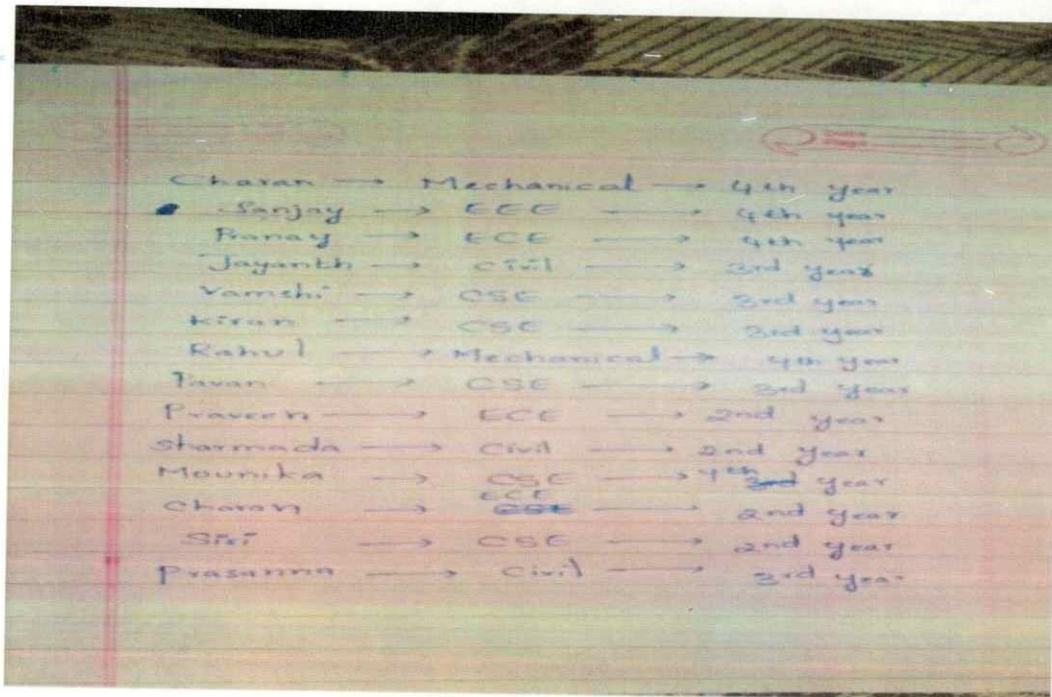 Date
Page
Charan → Mechanical → 4th year
Sanjay → EEE → 4th year
Pranay → ECE → 4th year
Jayanth → Civil → 3rd year
Vamshi → CSE → 3rd year
Kiran → CSE → 3rd year
Rahul → Mechanical → 4th year
Pavan → CSE → 3rd year
Praveen → ECE → 2nd year
Sharmada → Civil → 2nd year
Mounika → CSE → 4th 3rd year
Charan → ECE CSE → 2nd year
Siri → CSE → 2nd year
Prasanna → Civil → 3rd year